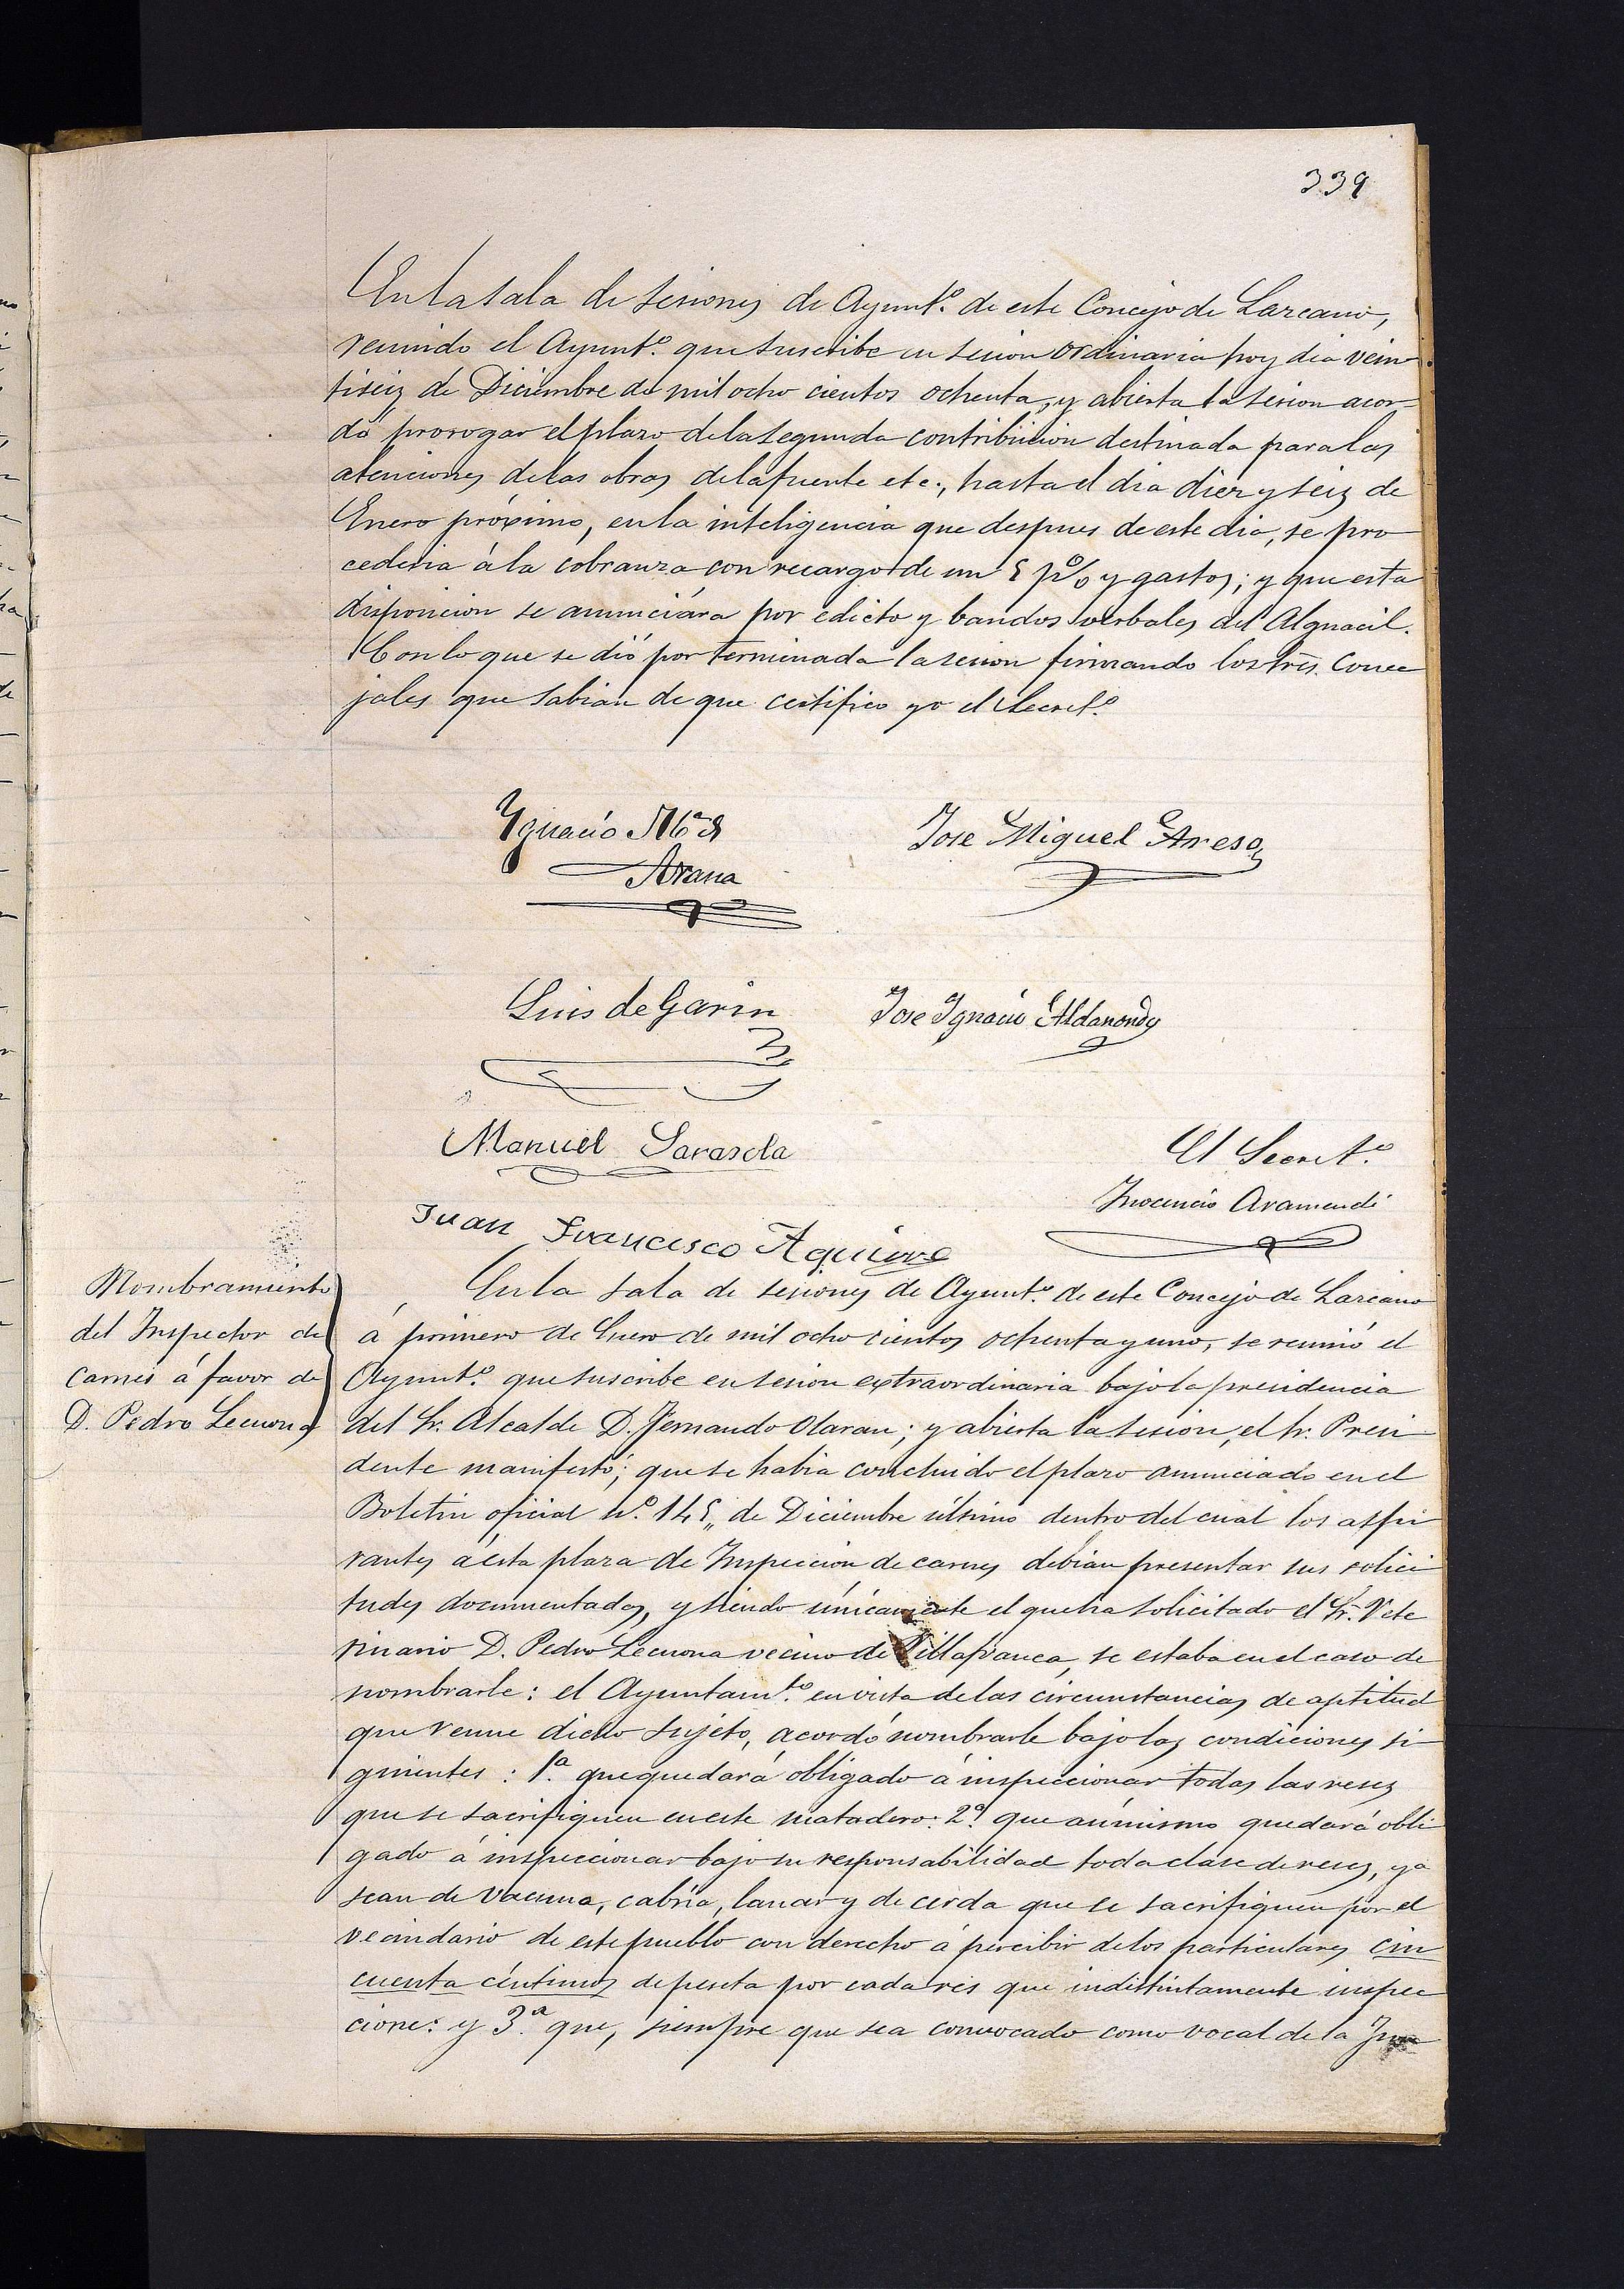 339
En la sala de sesiones de Ayunt.º de este Concejo de Lazcano,
reunido el Ayunt.º que suscribe en sesion ordinaria hoy dia vein
tiseis de Diciembre de mil ocho cientos ochenta, y abierta la sesion acor-
dó prorogar el plazo de la segunda contribucion destinada para las
atenciones de las obras de la fuente etc., hasta el dia diez y seis de
Enero próximo, en la inteligencia que despues de este dia, se pro
cederia á la cobranza con recargo de un 5 p% y gastos; y que esta
disposicion se anunciára por edicto y bandos verbales del Alguacil.
Con lo que se dió por terminada la sesion firmando los Srs. Conce
jales que sabian de que certifico yo el Secret.º
Ygnacio M.ª de
Arana
Jose Miguel Areso
Luis de Garin
Jose Ignacio Aldanondo
Manuel Sarasola
El Secret.º
Inocencio Aramendi
Juan Francisco Aguirre
Nombramiento
del Inspector de
carnes á favor de
D. Pedro Lecuona
En la sala de sesiones de Ayunt.º de este Concejo de Lazcano
á primero de Enero de mil ocho cientos ochenta y uno, se reunió el
Ayunt.º que suscribe en sesion extraordinaria bajo la presidencia
del Sr. Alcalde D. Fernando Olaran; y abierta la sesion, el Sr. Presi
dente manifestó; que se habia concluido el plazo anunciado en el
Boletin oficial n.º 145,, de Diciembre último dentro del cual los aspi
rantes á esta plaza de Inspeccion de carnes debian presentar sus solici
tudes documentadas, y siendo únicamente el que ha solicitado el Sr. Vete
rinario D. Pedro Lecuona vecino de Villafranca, se estaba en el caso de
nombrarle: el Ayuntam.to en vista de las circunstancias de aptitud
que reune dicho sujeto, acordó nombrarle bajo las condiciones si
guientes: 1.ª que quedará obligado á inspeccionar todas las reses
que se sacrifiquen en este matadero: 2.ª que asimismo quedará obli
gado á inspeccionar bajo su responsabilidad toda clase de reses, ya
sean de vacuno, cabrio, lanar y de cerda que se sacrifiquen por el
vecindario de este pueblo con derecho á percibir de los particulares cin
cuenta céntimos de peseta por cada res que indistintamente inspec
cione: y 3.ª que, siempre que sea convocado como vocal de la Jun